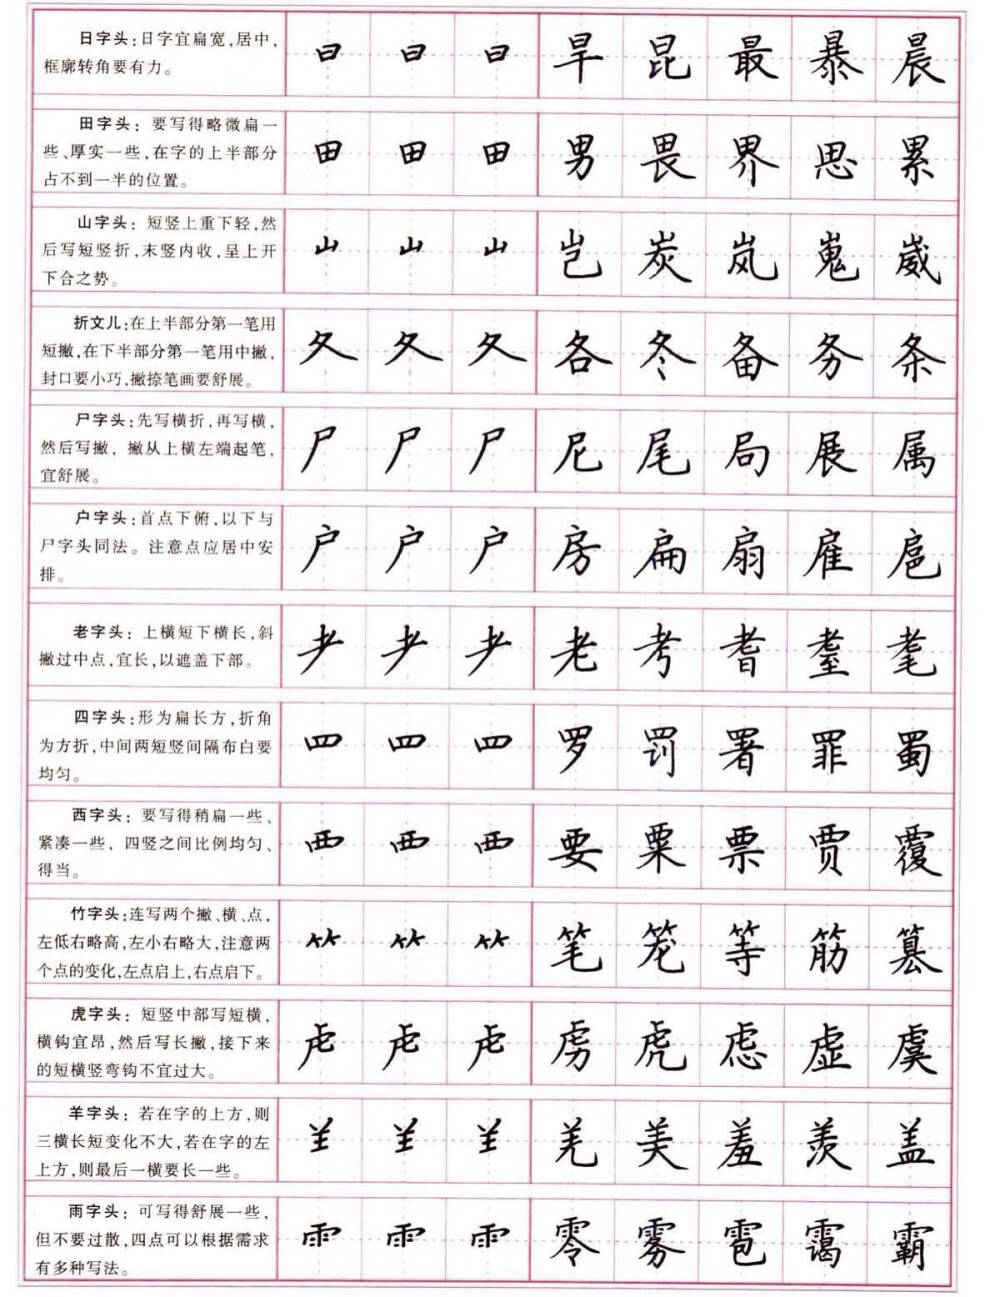 日字头:日字宜扁宽,居中,
框廓转角要有力。
日 日 日 旱 昆 最 暴 晨
田字头：要写得略微扁一
些、厚实一些,在字的上半部分
占不到一半的位置。
田 田 田 男 畏 界 思 累
山字头：短竖上重下轻,然
后写短竖折,末竖内收,呈上开
下合之势。
山 山 山 岂 炭 岚 嵬 崴
折文儿:在上半部分第一笔用
短撇,在下半部分第一笔用中撇,
封口要小巧,撇捺笔画要舒展。
夂 夂 夂 各 冬 备 务 条
尸字头:先写横折,再写横,
然后写撇，撇从上横左端起笔,
宜舒展。
尸 尸 尸 尼 尾 局 展 属
户字头：首点下俯,以下与
尸字头同法。注意点应居中安
排。
户 户 户 房 扁 扇 雇 扈
老字头：上横短下横长,斜
撇过中点,宜长,以遮盖下部。
耂 耂 耂 老 考 耆 耋 耄
四字头:形为扁长方,折角
为方折,中间两短竖间隔布白要
均匀。
罒 罒 罒 罗 罚 署 罪 蜀
西字头：要写得稍扁一些、
紧凑一些，四竖之间比例均匀、
得当。
覀 覀 覀 要 粟 票 贾 覆
竹字头:连写两个撇、横、点,
左低右略高,左小右略大,注意两
个点的变化,左点启上,右点启下。
⺮ ⺮ ⺮ 笔 笼 等 筋 篡
虎字头：短竖中部写短横,
横钩宜昂,然后写长撇,接下来
的短横竖弯钩不宜过大。
虍 虍 虍 虏 虎 虑 虚 虞
羊字头：若在字的上方,则
三横长短变化不大,若在字的左
上方,则最后一横要长一些。
⺷ ⺷ ⺷ 羌 美 羞 羡 盖
雨字头：可写得舒展一些,
但不要过散,四点可以根据需求
有多种写法。
⻗ ⻗ ⻗ 零 雾 雹 霭 霸